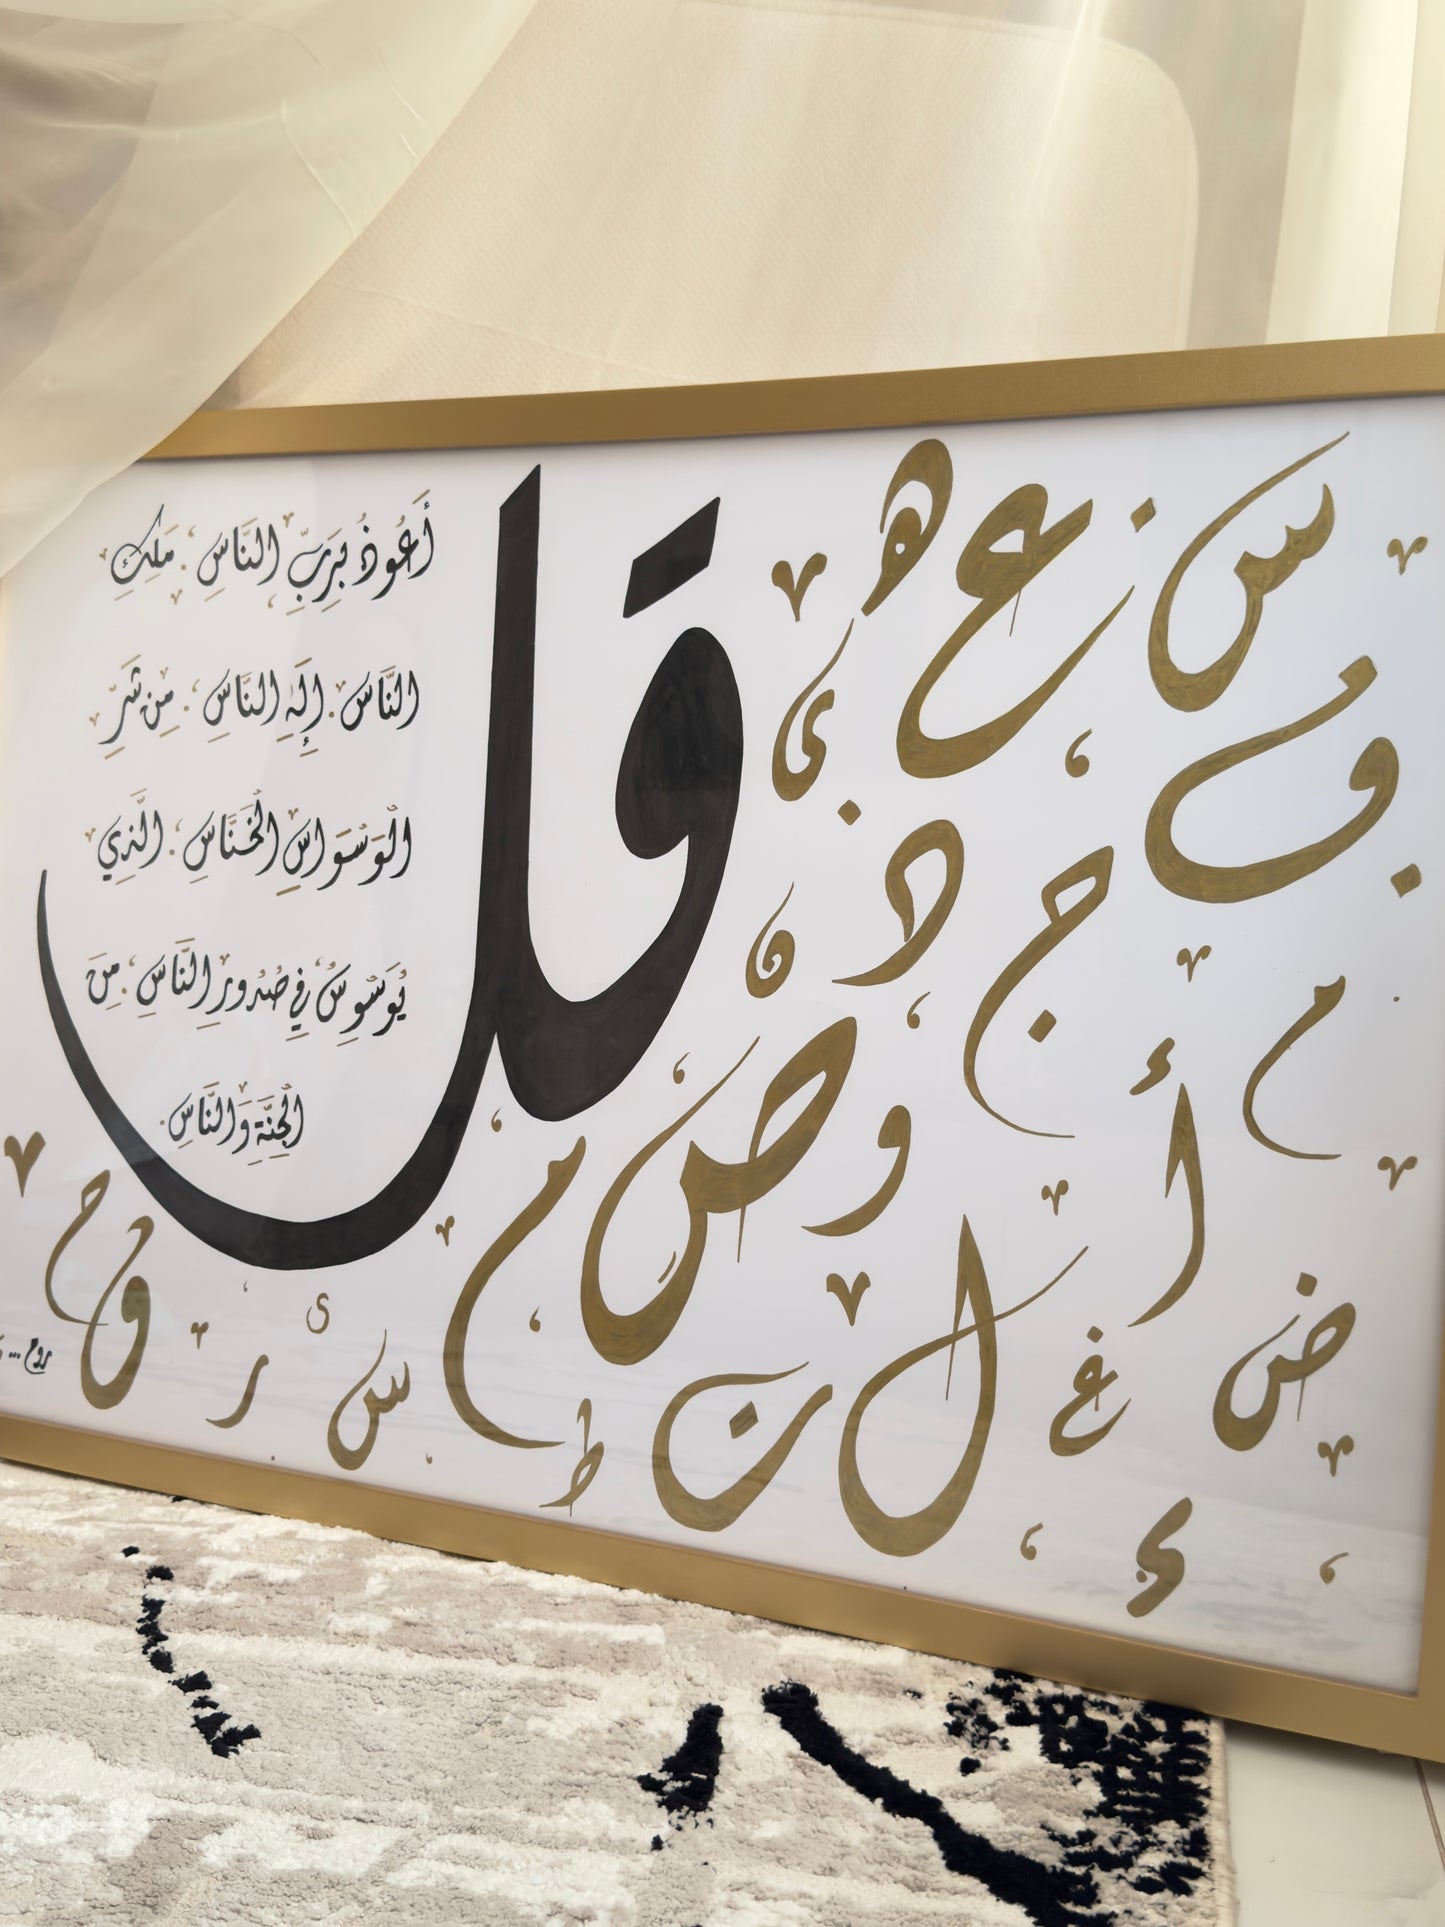 قل
أَعُوذُ بِرَبِّ النَّاسِ . مَلِكِ
النَّاسِ . إِلَٰهِ النَّاسِ . مِن شَرِّ
الْوَسْوَاسِ الْخَنَّاسِ . الَّذِي
يُوَسْوِسُ فِي صُدُورِ النَّاسِ . مِنَ
الْجِنَّةِ وَالنَّاسِ .
س ع ه
ى
ج د ن
م أ و ص
ض غ ل ن م و ح
ط س ر ى
روح ...